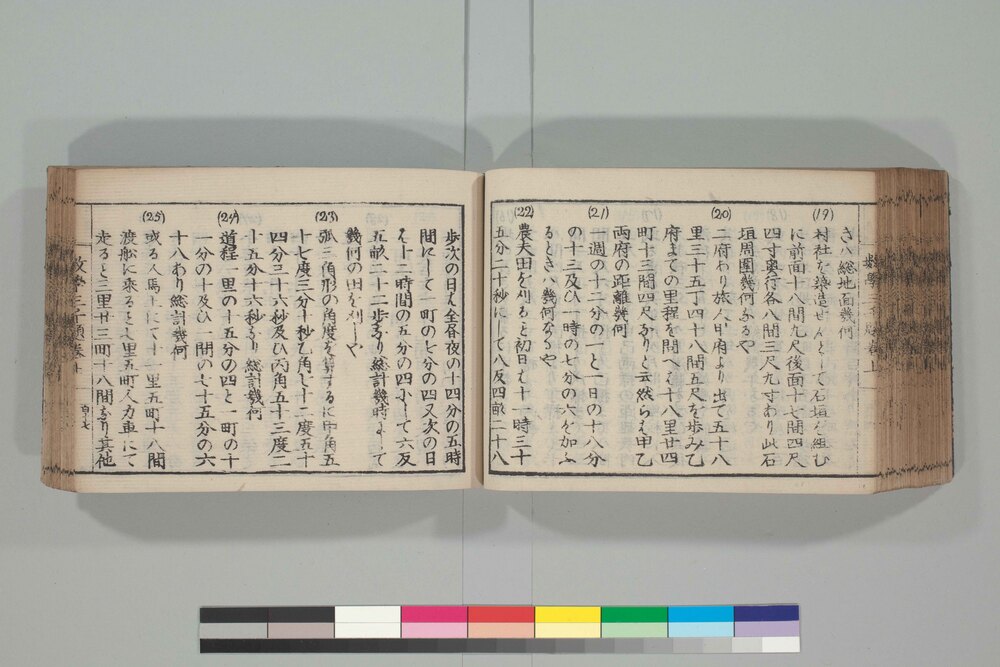 さハ総地面幾何
(19)
村社を築造せんとして石垣を組む
に前面十八間九尺後面十七間四尺
四寸奥行各八間三尺九寸わり此石
垣周囲幾何なるや
(20)
二府わり旅人甲府より出て五十八
里三十五丁四十八間五尺を歩み乙
府までの里程を問へむ十八里廿四
町十三間四尺なりと云然らむ甲乙
両府の距離幾何
(21)
一週の十二分の一と一日の十八分
の十三及ひ一時の七分の六を加ふ
るときハ幾何なるや
(22)
農夫田を刈ると初日む十一時三十
五分二十秒にして八反四畝二十八
歩次の日む全昼夜の十四分の五時
間にして一町の七分の四又次の日
む十二時間の五分の四小して六反
五畝二十二歩なり総計幾時よして
幾何の田を刈しや
(23)
弧三角形の角度を算するに甲角五
十七度三分十秒乙角七十二度五十
四分三十六秒及ひ丙角五十三度二
十五分十六秒なり総計幾何
(24)
道程一里の十五分の四と一町の十
一分の十及ひ一間の七十五分の六
十八わり総計幾何
(25)
或る人馬上にて十一里五町十八間
渡船に乗ると七里五町人力車にて
走ると三里廿三町十八間なり其他